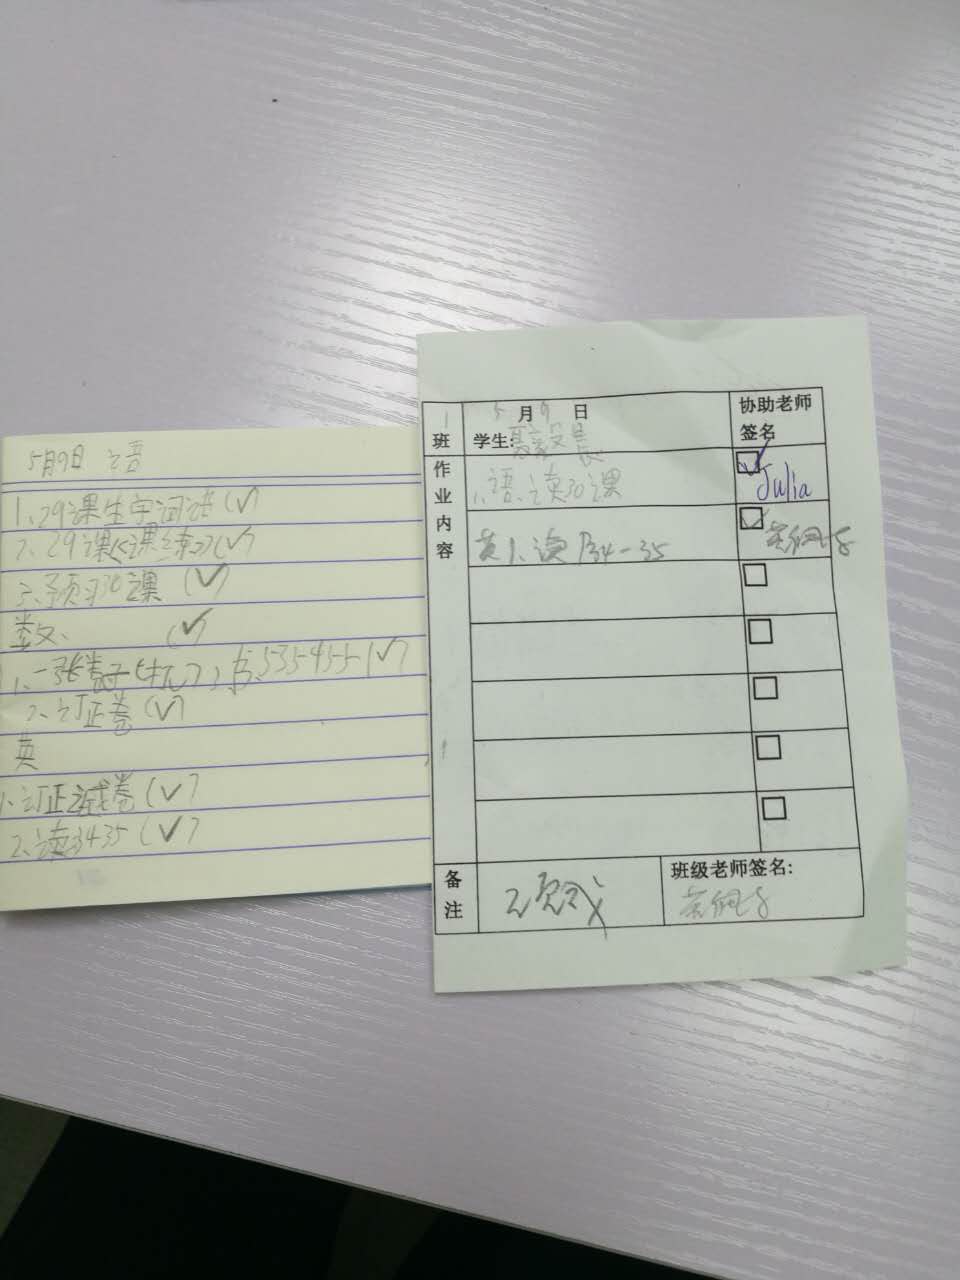 5月9日 语
1、29课生字词语(✓)
2、29课《课课练》(✓)
3、预习30课 (✓)
数、 (✓)
1、一张卷子 (✓)
2、订正卷(✓)
英
1、订正试卷(✓)
2、读3435(✓)
1班
5月9日
学生:
协助老师签名
作业内容
1、语、读30课
Julia
英1、读P34-35
备注
班级老师签名: